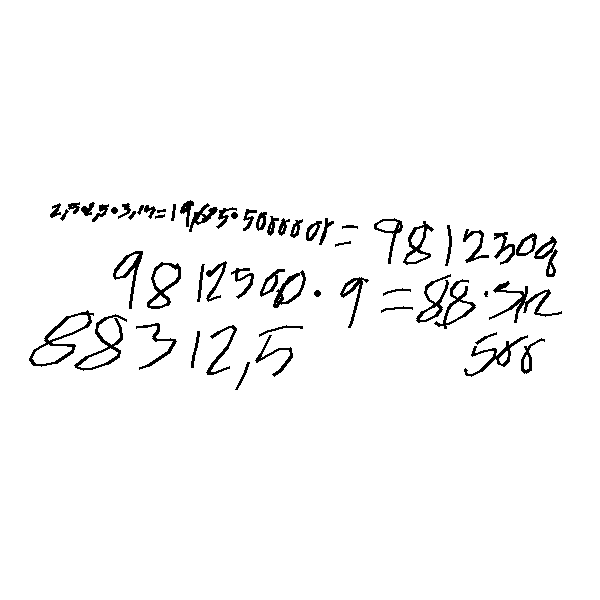 2,5·2,5·3,14=19,625·5000000=98125000
9812500·9=88.312
500
88312,5